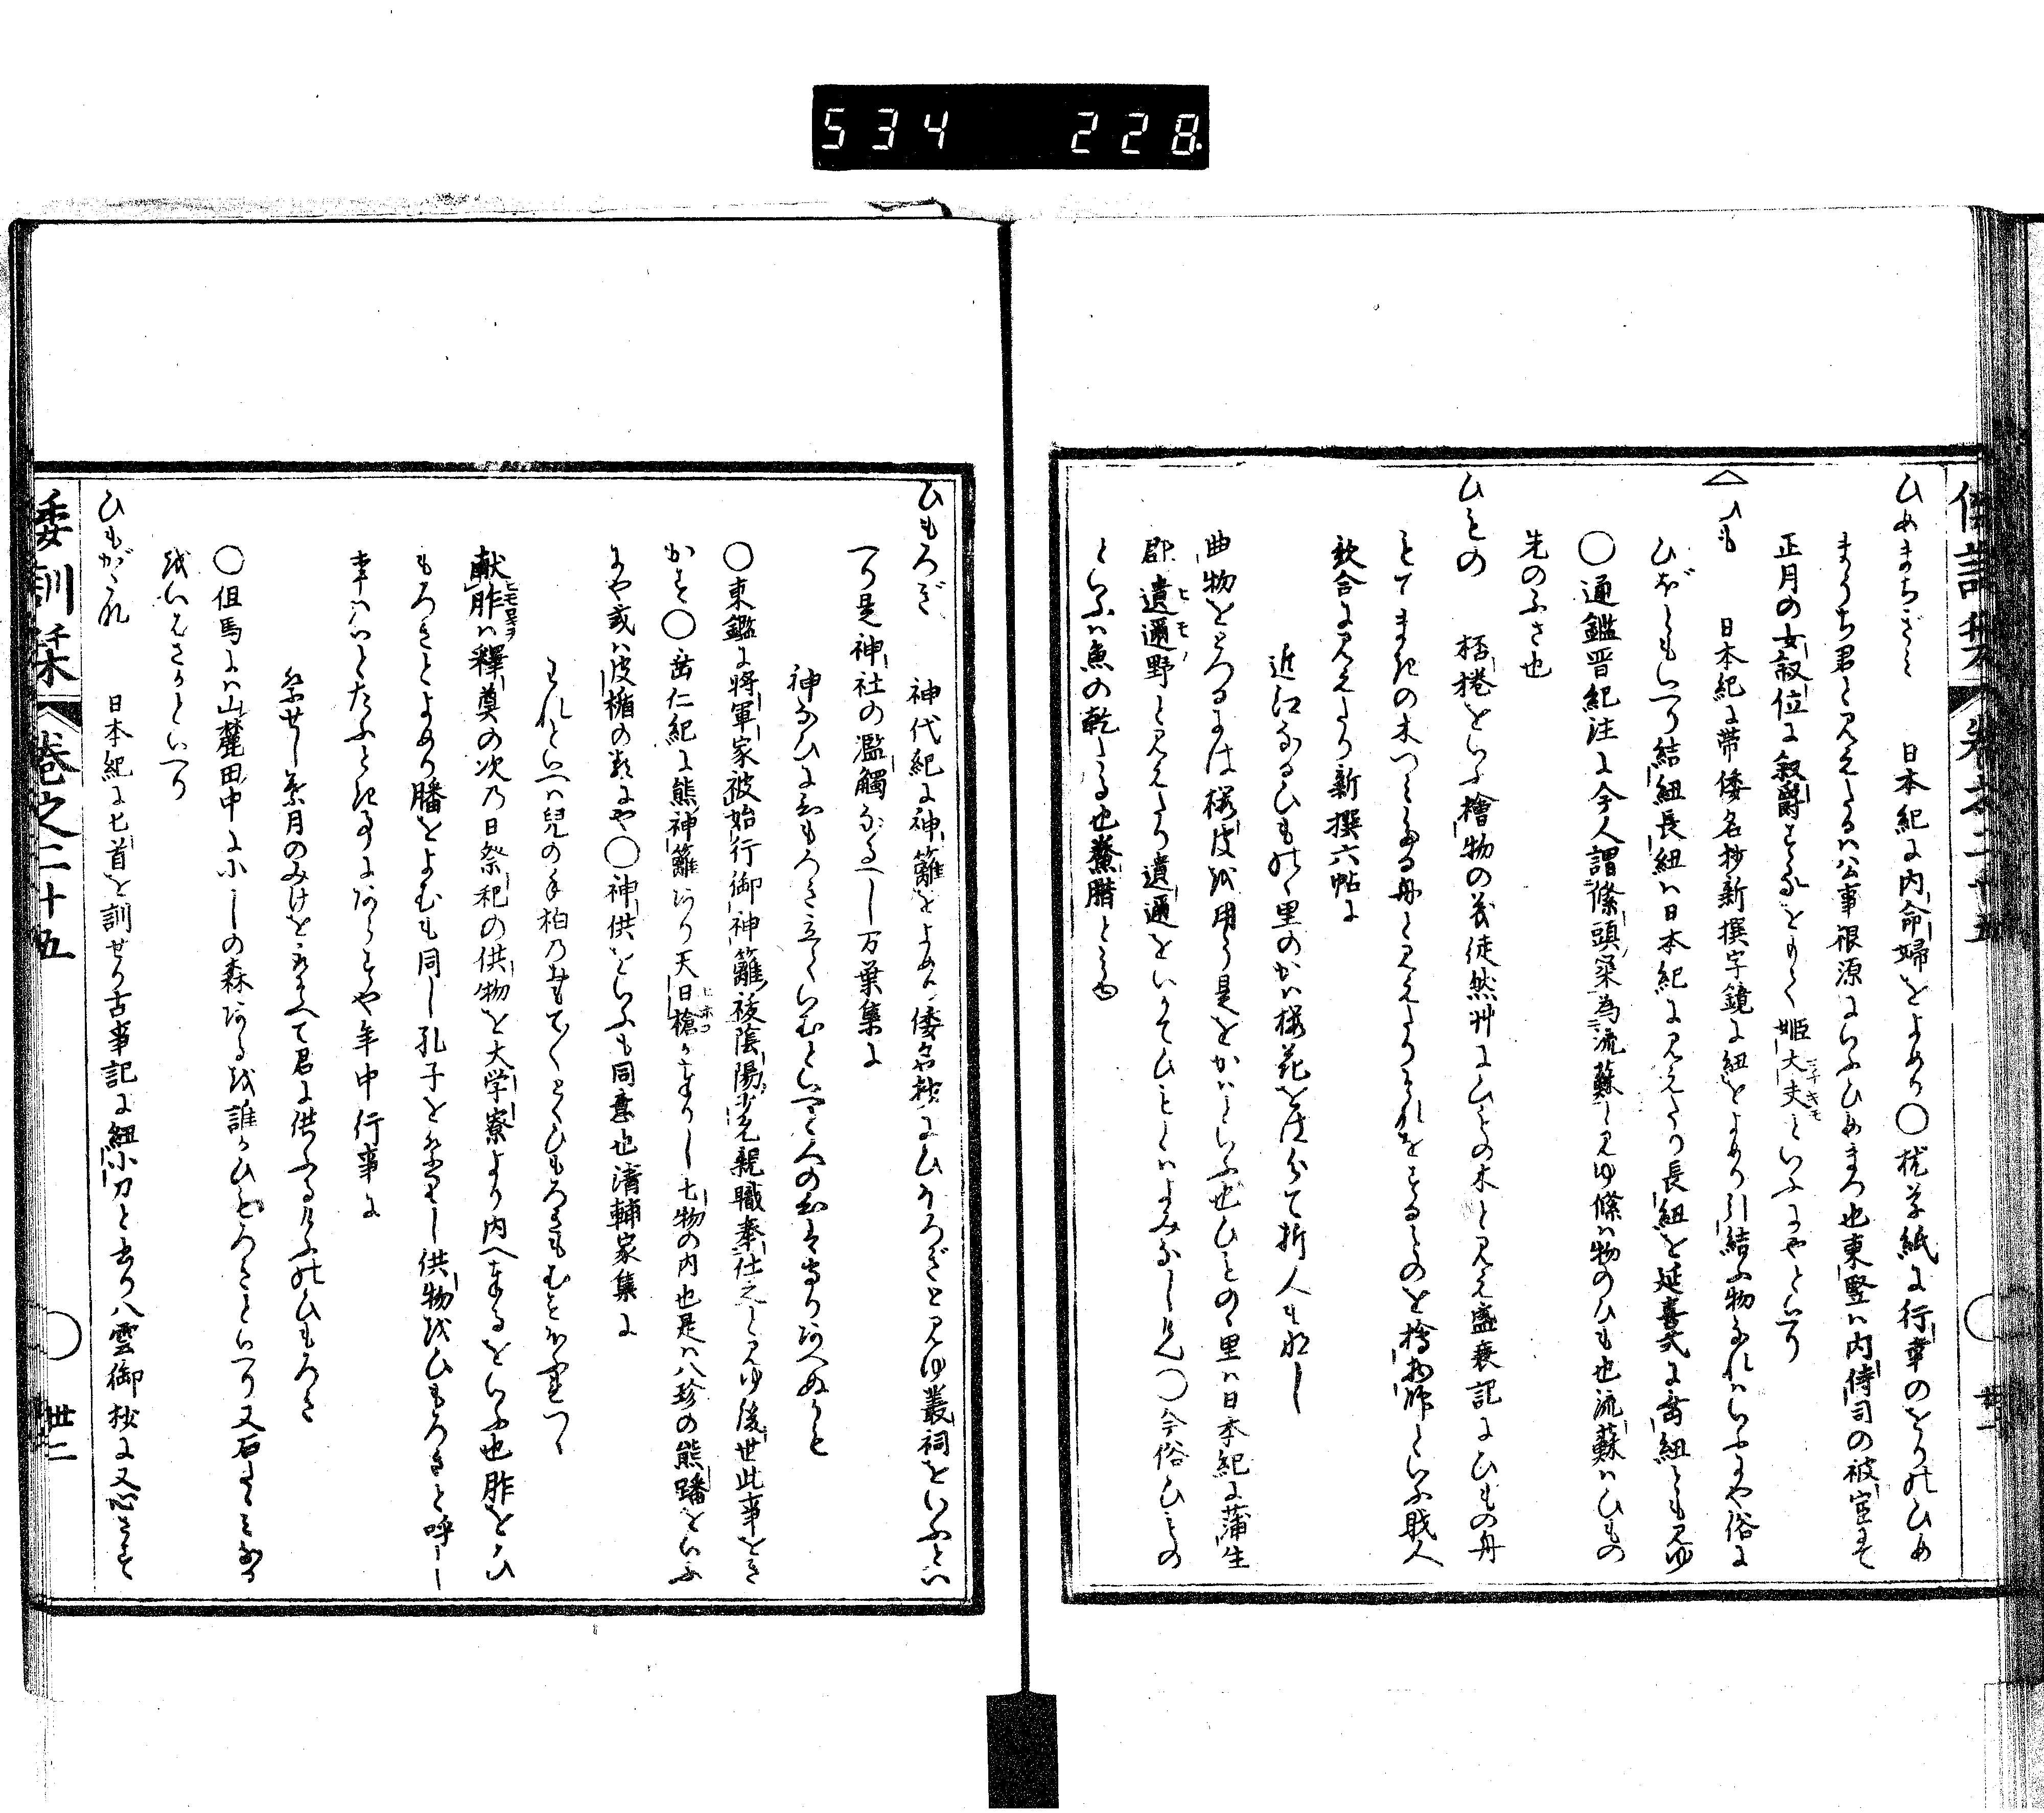 534 228
ひめまちぎミ 日本紀に内命婦をよめり〇枕草紙に行幸のをりのひめ
まうち君と見えたるハ公事根源にいふひめまつ也東竪ハ内侍司の被官にて
正月の女叙位に叙爵するをもて姫大夫といふにやといへり
ひも 日本紀に帯倭名抄新撰字鏡に紐をよめり引結ふ物なれハいふにや俗に
ひぼともいへり結紐長紐ハ日本紀に見えたり長紐を延喜式に斎紐とも見ゆ
〇通鑑晋紀注に今人謂絛頭為流蘇と見ゆ絛ハ物のひも也流蘇ハひもの
先のふさ也
ひもの 栝棬をいふ檜物の義徒然艸にひもの木と見え盛衰記にひもの舟
とてまきの木つミたる舟と見えたりこれをするものを檜物師といふ職人
歌合に見えたり新撰六帖に
近江なるひもの里のかハ桜花をはわきて折人もなし
曲物をとつるには桜皮を用う是をかハといふ也ひもの里ハ日本紀に蒲生
郡遺邇野と見えたり遺邇をいかてひもとハよみなしけん〇今俗ひもの
といふハ魚の乾たる也鱶腊とミゆ
ひもろぎ 神代紀に神籬をよめり倭名抄にひほろぎと見ゆ叢祠をいふとい
へり是神社の濫觴なるへし万葉集に
神なひにひもろき立ていむといへと人の心はまもりあへぬかも
〇東鑑に将軍家被始行御神籬後陰陽少允親職奉仕之と見ゆ後世此事をき
かす〇垂仁紀に熊神籬あり天日槍かまゐりし七物の内也是ハ八珍の熊蹯をいふ
にや或ハ皮楯の類にや〇神供をいふも同意也清輔家集に
これといへハ児の手柏のおもてくひもろきもむとそ
献胙ハ釋奠の次乃日祭祀の供物を大学寮より内へ奉るをいふ也胙をひ
もろきとよめり膰をよむも同し孔子を祭りし供物をひもろきと呼し
事ハいとたふとき事にあらすや年中行事に
祭せし葉月のみけをそなへて君に供ふるけふのひもろき
〇但馬に山麓田中に小しの森あるを誰かひもろきといへり又石
をいはさかといへり
ひもがたな 日本紀に匕首を訓せり古事記に紐小刀と書り八雲御抄に又心さす
倭訓栞 巻之二十五 卅一
倭訓栞 巻之二十五 卅二